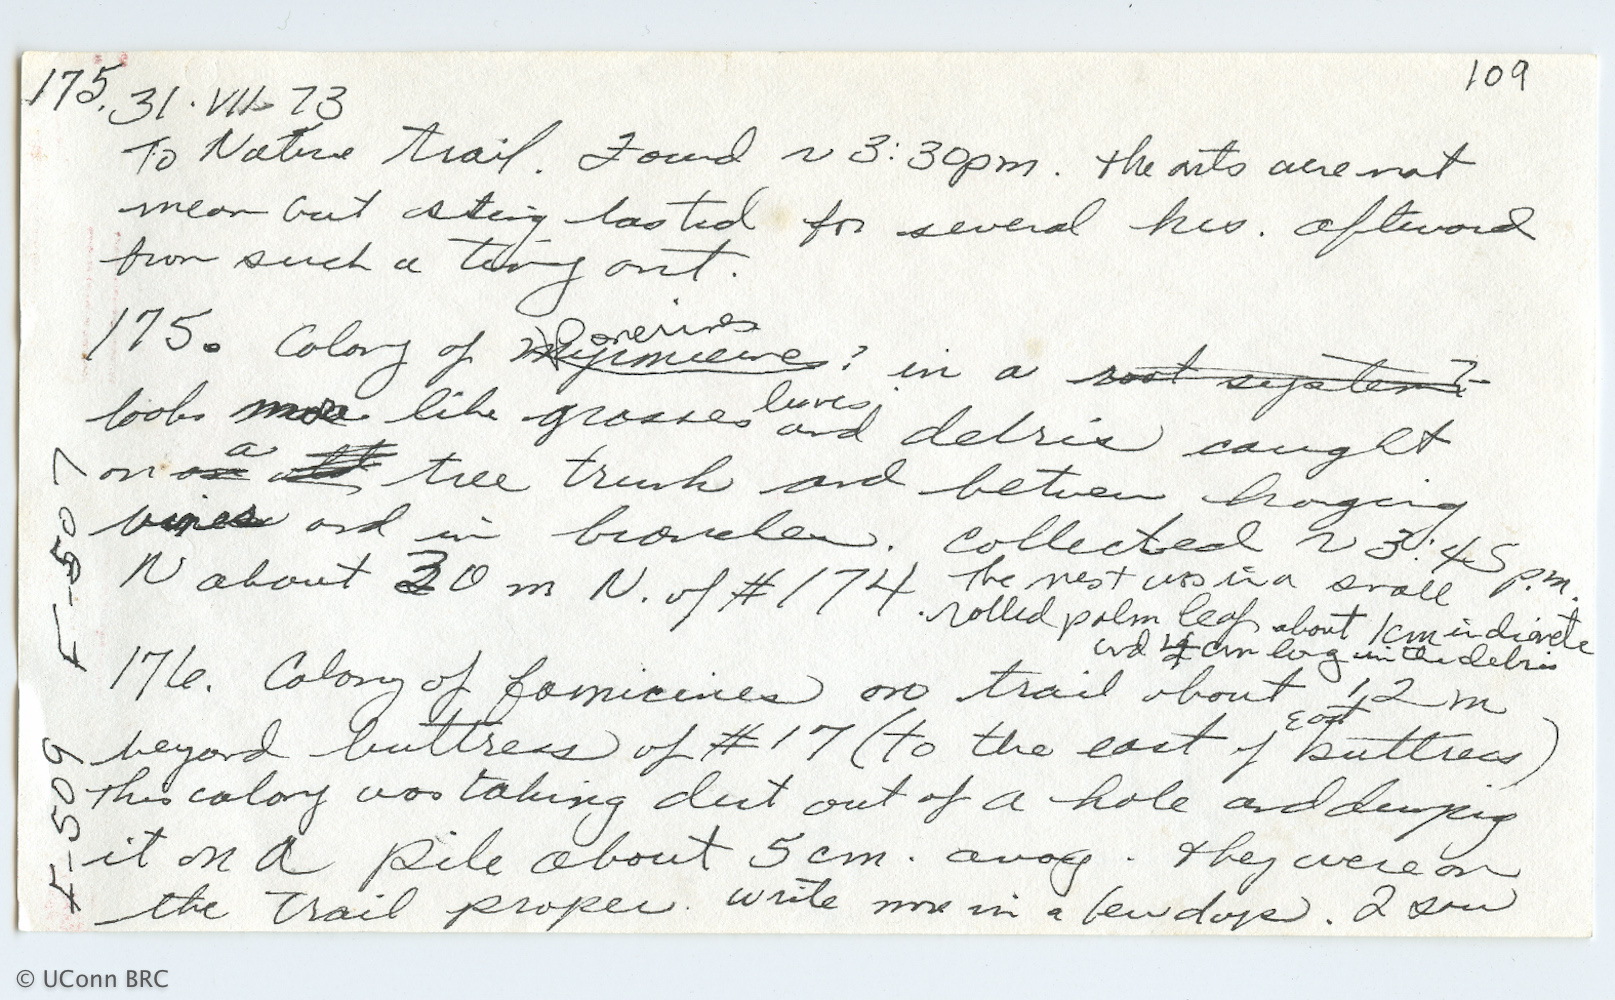 109
175. 31·VII-73
To Nature Trail. Found ~ 3:30pm. the ants were not
mean but a sting lasted for several hrs. afterward
from such a tiny ant.
175. Colony of Myrmicines Ponerines? in a root system?
looks more like grasses leaves, and debris caught
on a tree trunk and between hanging
vines and in branches. Collected ~ 3:45 p.m.
N about 30 m N. of #174. The nest was in a small
rolled palm leaf about 1cm in diamete
and 4 cm long in the debris
F-507
176. Colony of formicines on trail about 1,2 m
beyond buttress of #17 (to the east of East buttress)
This colony was taking dirt out of a hole and dumpig
it on a pile about 5 cm. away. They were on
the trail proper. write more in a few days. I saw
F-509
© UConn BRC